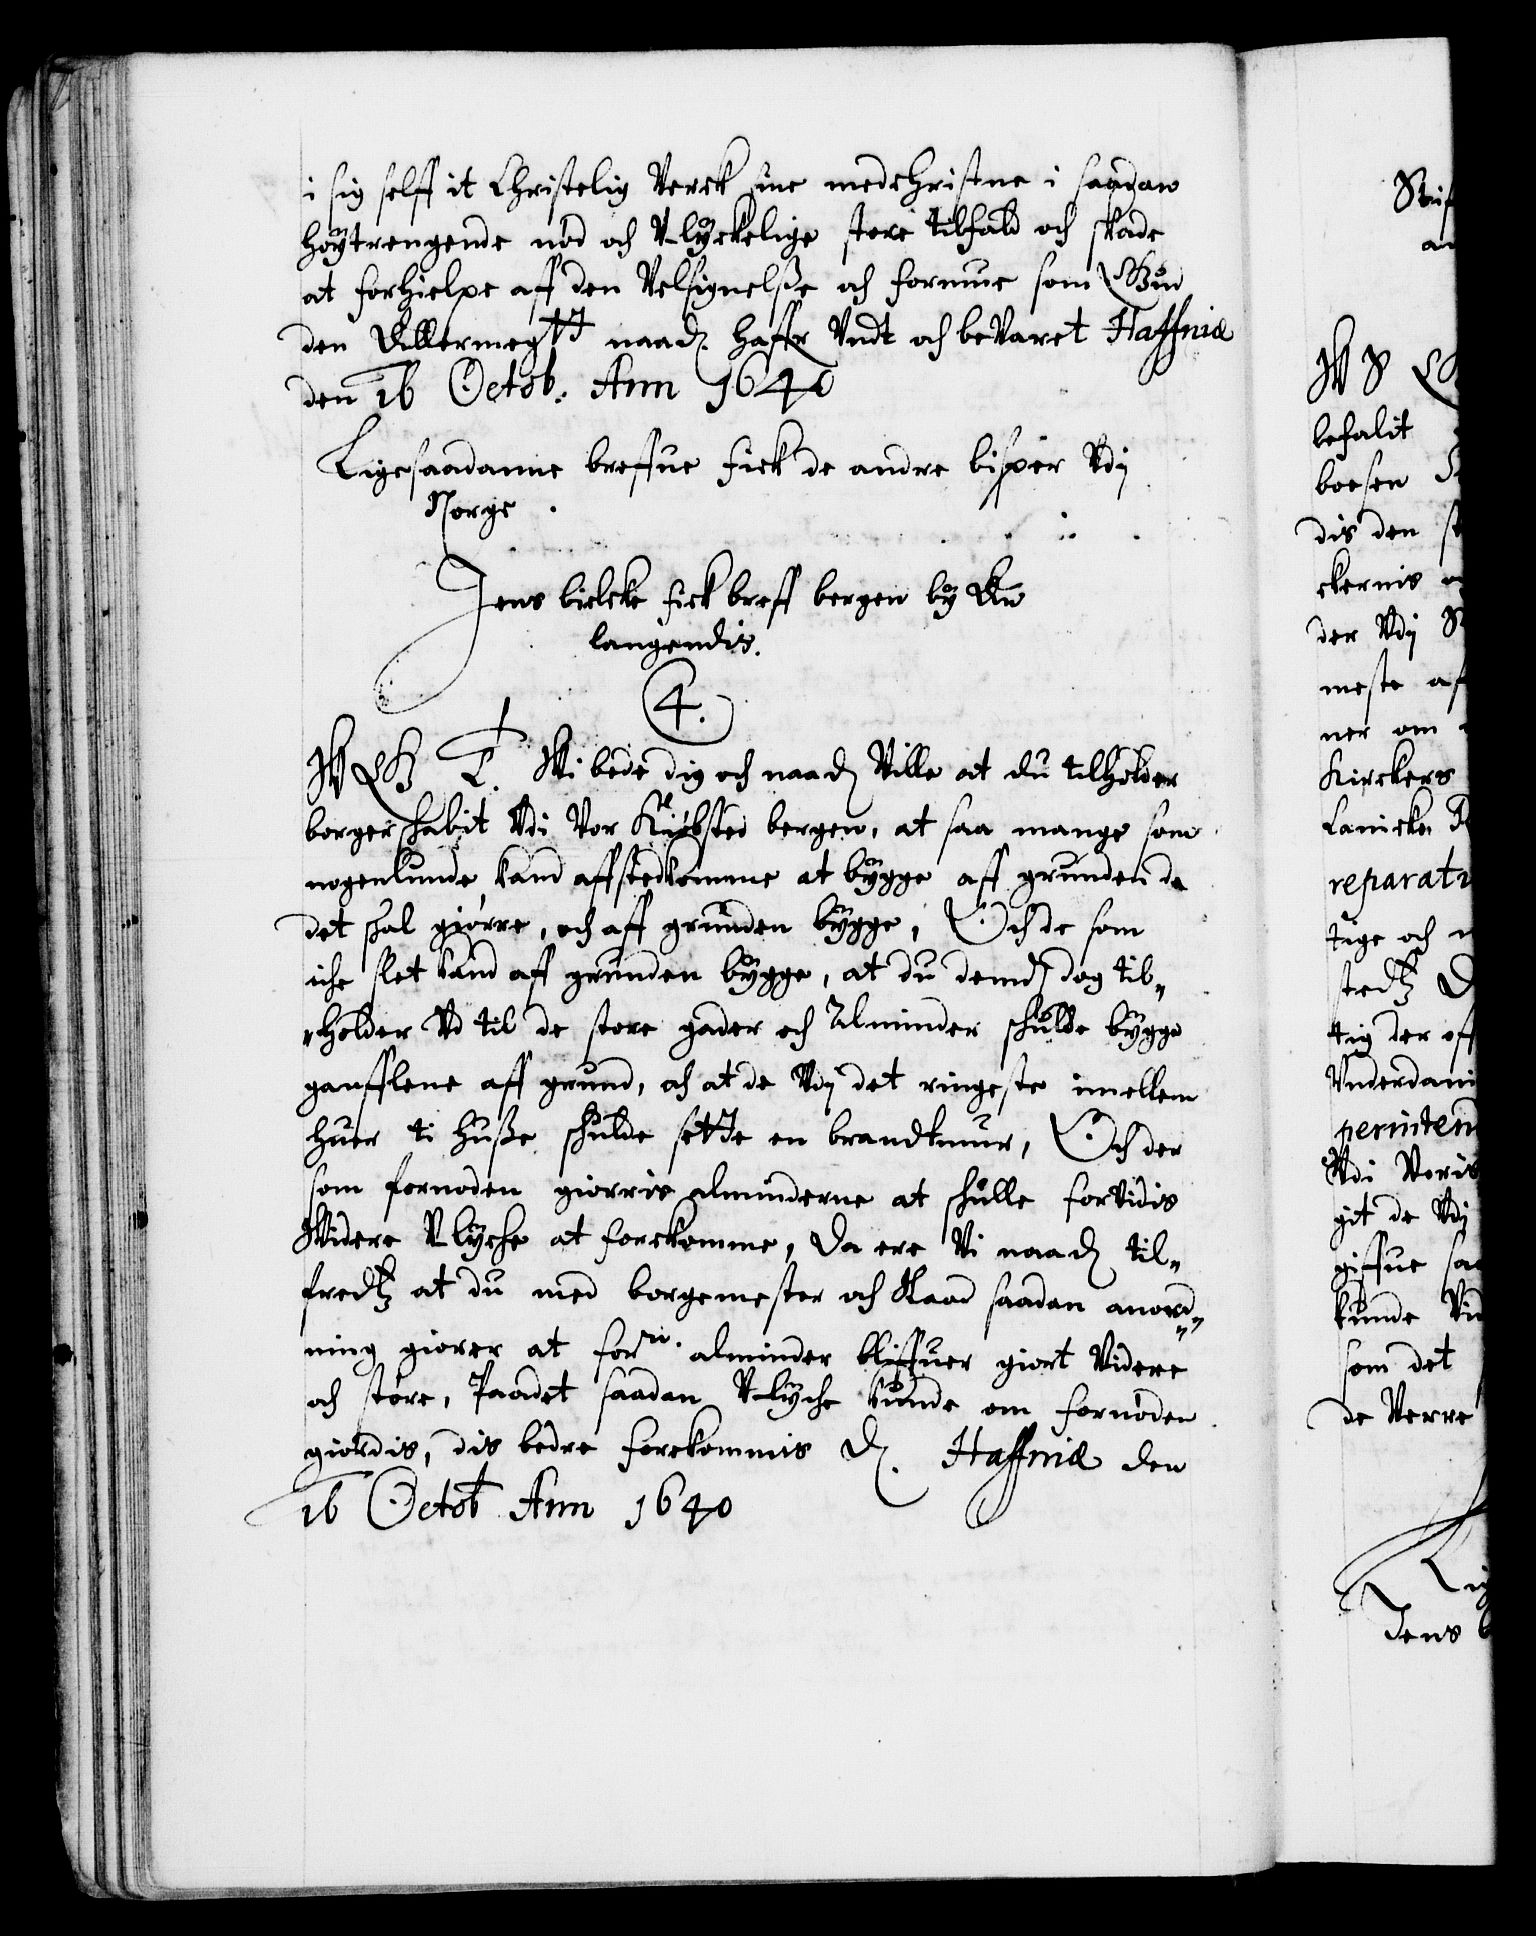 i sig selff it Christelig Verck sine medchristne i saadan
höytrengende nöd och Vlyckelige store tilfald och skade
at forhielpe aff den Velsignelsse och formue som Gud
den Allermegtt naad. haffr Vndt och beVaret Haffniæ
den 16 Octob: Ann 1640
Ligesaadanne breffue fick de andre bisper Vdj
Norge.
Jens bielcke fick breff bergen by An
langendis.
4.
W G T. Wi bede dig och naad Ville at du tilholder
borgerschabit Vdi Vor Kiöbsted bergen, at saa mange som
nogenlunde kand affstedkomme at bygge aff grunden da
det schal giörre, och aff grunden bygge, Och de som
iche slet kand aff grunden bygge, at du demd dog til„
„holder Vd til de store gader och Alminder schulde bygge
gaufflene aff grund, och at de Vdj det ringeste imellem
huer ti Husse schulde sette en brandtmur, Och der
som fornöden giörris alminderne at schulle forVidis
Widere Vlyche at forekomme, Da ere Vi naad til„
fredtz at du med borgemester och Raad saadan anord„
ning giörer at forn. alminder bliffuer giort Videre
och störe, Paadet saadan Vlyche kunde om fornöden
giördis, dis bedre forekommis D. Haffniæ den
16 Octob Ann 1640
befalit
boesen
dis den
ckernis
der Vdj
meste aff
ner om
Kirckers
reparati
tuge och
stedtz
tig der off
Vnderdani
perintend
Vdi Veris
git de Vdj
giffue saa
kunde Vid
som det
de Verre
Lig
Jens b